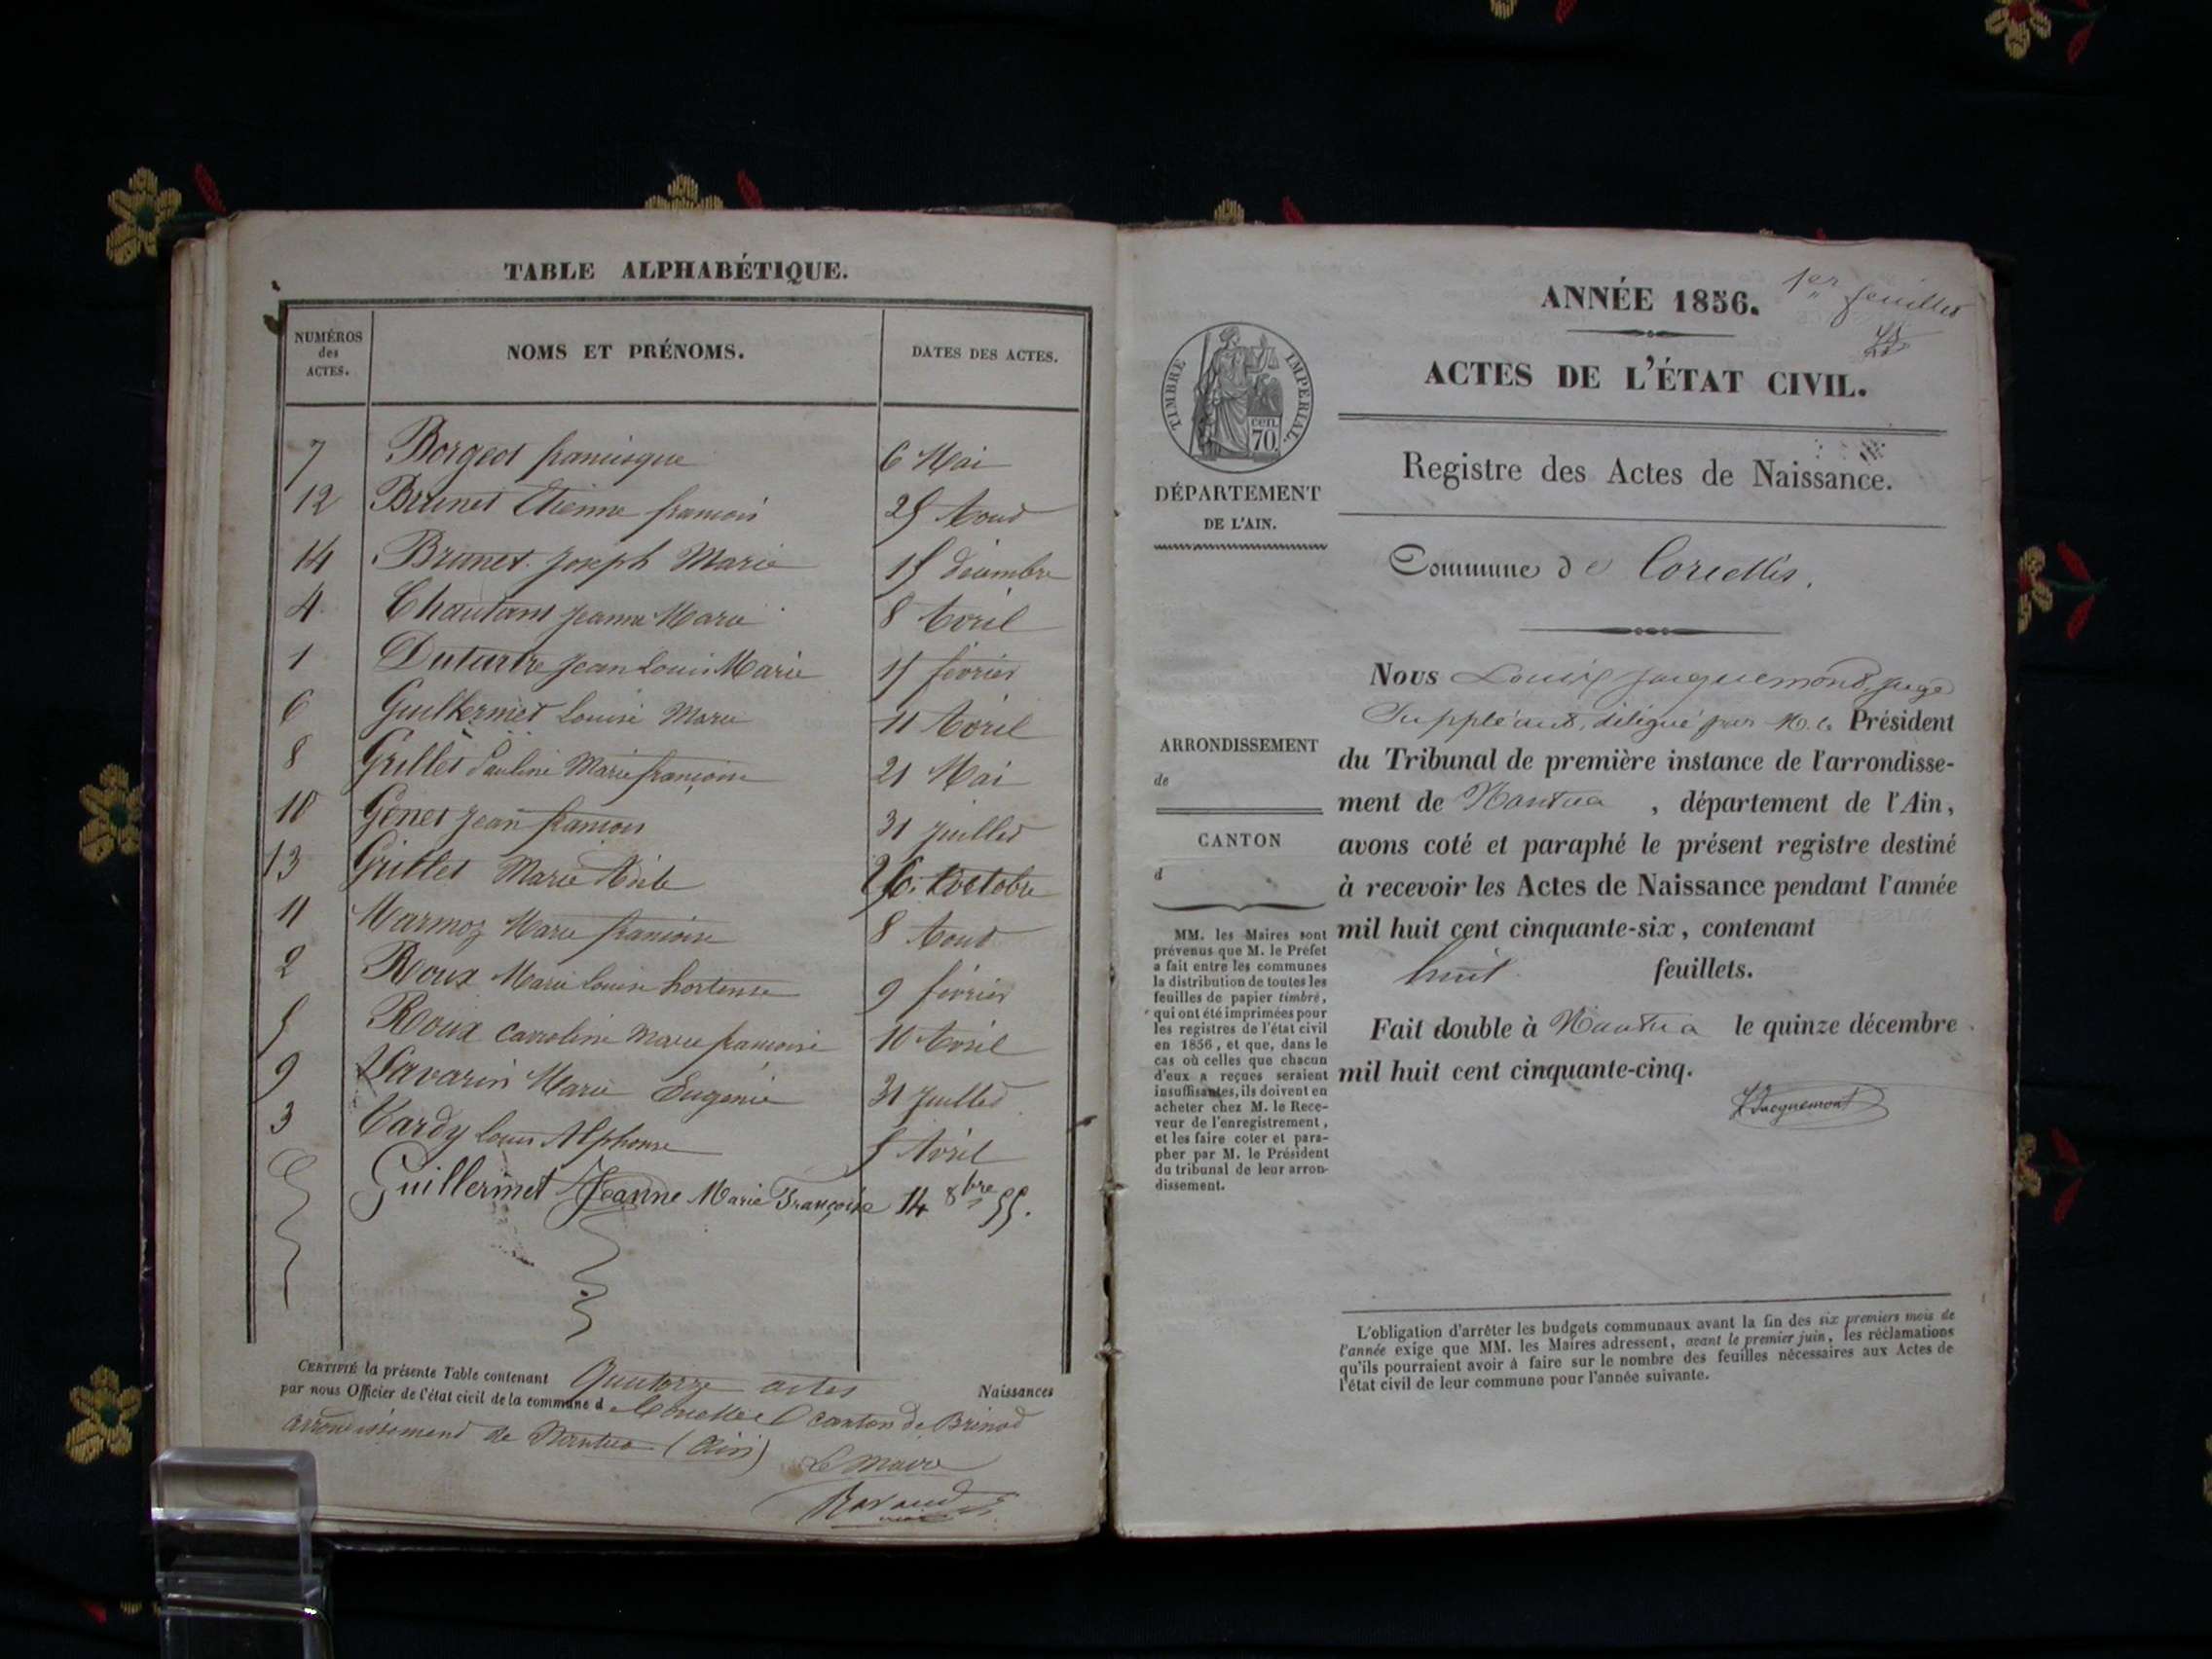 TABLE ALPHABÉTIQUE.
NUMÉROS des ACTES. NOMS ET PRÉNOMS. DATES DES ACTES.
7 Borgeot francisque 6 Mai
12 Brunet Etienne francois 25 Aout
14 Brunet Joseph Marie 15 décembre
4 Chautant Jeanne Marie 8 Avril
1 Duturtre Jean Louis Marie 15 février
6 Guillermet Louise Marie 11 Avril
8 Grillet Pauline Marie françoise 21 Mai
10 Genet Jean francois 31 Juillet
13 Grillet Marie 26 Octobre
11 Marmoz Marie francoise 8 Aout
2 Roux Marie Louise hortense 9 février
5 Roux Carroline Marie francoise 10 Avril
9 Savarin Marie Eugénie 31 Juillet
3 Tardy Louis Alphonse 5 Avril
Guillermet Jeanne Marie Françoise 14 8bre 55.
CERTIFIÉ la présente Table contenant Quatorze actes Naissances
par nous Officier de l'état civil de la commune d Corcelles canton de Brénod
arrondissement de Nantua (Ain)
Le Maire
Ravaud
1er feuillet
ANNÉE 1856.
ACTES DE L'ÉTAT CIVIL.
TIMBRE IMPERIAL.
cen. 70.
DÉPARTEMENT
DE L'AIN.
Registre des Actes de Naissance.
Commune de Corcelles.
Nous Louis Jacquemont, Juge
Suppléant, délégué par M. le Président
du Tribunal de première instance de l'arrondisse-
ment de Nantua, département de l'Ain,
avons coté et paraphé le présent registre destiné
à recevoir les Actes de Naissance pendant l'année
mil huit cent cinquante-six, contenant
huit feuillets.
Fait double à Nantua le quinze décembre
mil huit cent cinquante-cinq.
Jacquemont
ARRONDISSEMENT
de
CANTON
d
MM. les Maires sont
prévenus que M. le Préfet
a fait entre les communes
la distribution de toutes les
feuilles de papier timbré,
qui ont été imprimées pour
les registres de l'état civil
en 1856, et que, dans le
cas où celles que chacun
d'eux a reçues seraient
insuffisantes, ils doivent en
acheter chez M. le Rece-
veur de l'enregistrement,
et les faire coter et para-
pher par M. le Président
du tribunal de leur arron-
dissement.
L'obligation d'arrêter les budgets communaux avant la fin des six premiers mois de
l'année exige que MM. les Maires adressent, avant le premier juin, les réclamations
qu'ils pourraient avoir à faire sur le nombre des feuilles nécessaires aux Actes de
l'état civil de leur commune pour l'année suivante.